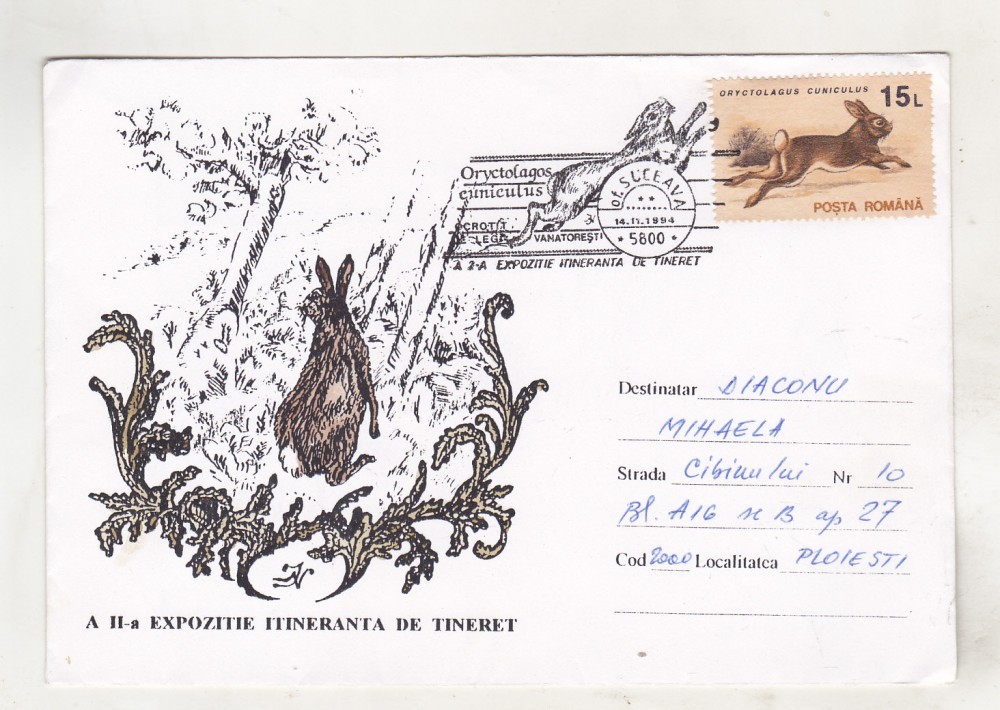 ORYCTOLAGUS CUNICULUS 15L
POȘTA ROMÂNĂ
Oryctolagos
cuniculus
CROTIT
E LEGE VANATOREȘTI
of. SUCEAVA
14.11.1994
* 5800 *
A 2-A EXPOZITIE ITINERANTA DE TINERET
Destinatar DIACONU
MIHAELA
Strada Cibinului Nr 10
Bl. A16 sc B ap 27
Cod 2000 Localitatea PLOIESTI
A II-a EXPOZITIE ITINERANTA DE TINERET